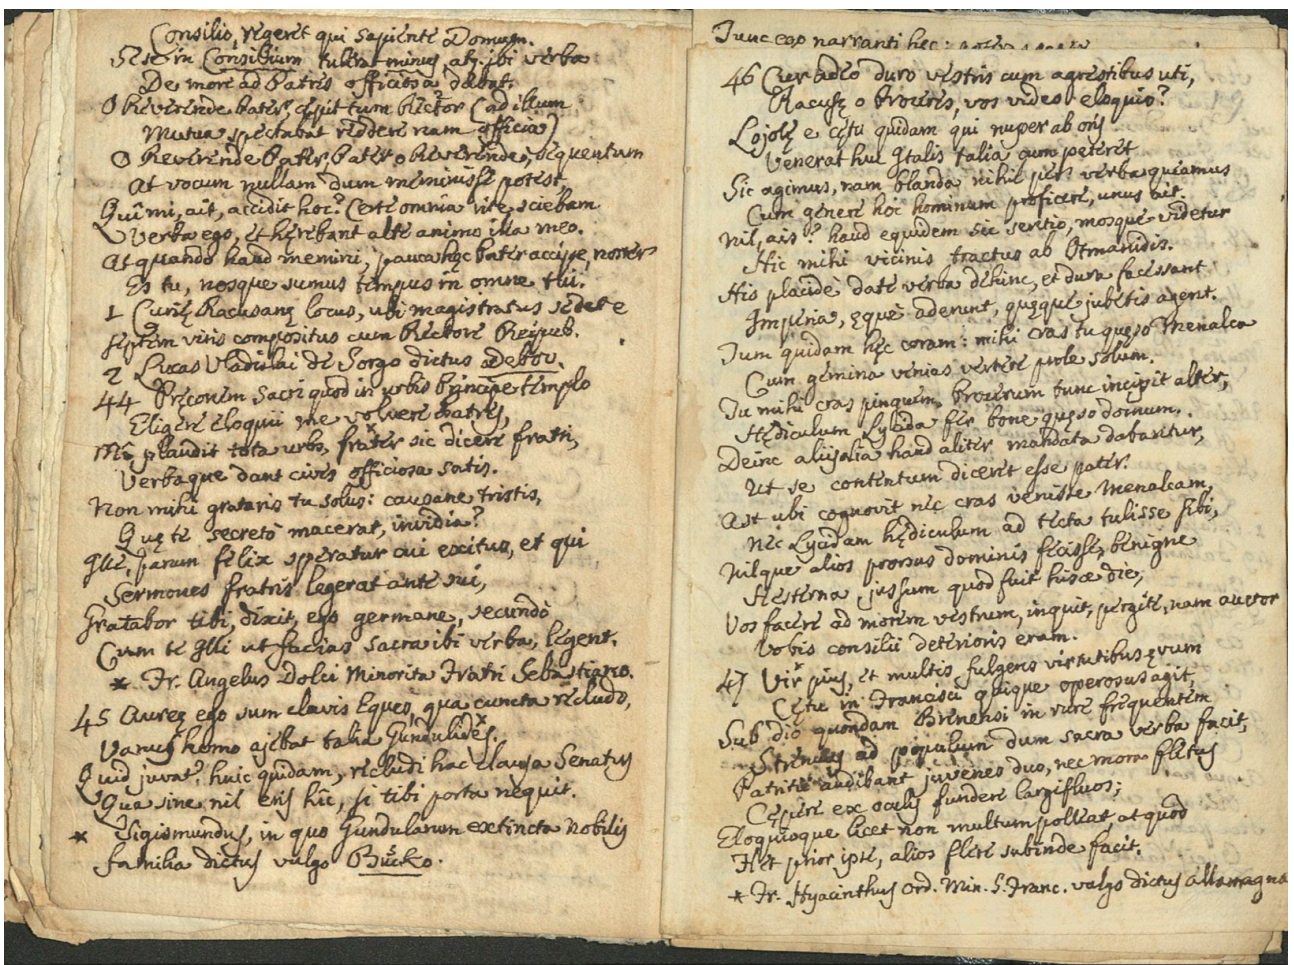 Consilio, regeret qui sapiente Domum.
Sese in Consilium tulerat minus, atq; ibi verba
De more ad Patres officiosa dabat.
O Reverende Pater, cępit tum Rector (ad illum
Mutua spectabat reddere nam officia)
O Reverende Pater, Pater o Reverende; sequentum
At vocum nullam dum meminisse potest
Qui mi, ait, accidit hoc? Certe omnia rite sciebam
Verba ego, et hęrebant alte animo illa meo.
At quando haud memini, pauca hęc Pater accipe, noster
Es tu, nosque sumus tempus in omne tui.
1 Curię Racusanę locus, ubi magistratus sedet e
septem viris compositus cum Rectore Reipub.
2 Lucas Vladislai de Sorgo dictus Debov.
44 Pręconem Sacri quod in urbis Principe templo
Eligere eloquii me voluere Patres,
Mi plaudit tota urbs, frater sic dicere fratri,
Verbaque dant cives officiosa satis.
Non mihi grataris tu solus: causane tristis,
Quę te secretò macerat, invidia?
Ille, parum felix speratur cui exitus, et qui
Sermones fratris legerat ante sui,
Gratabor tibi, dixit, ego germane, secundò
Cum te Illi ut facias sacra ibi verba, legent.
* Fr. Angelus Dolci Minorita Fratri Sebastiano.
45 Aureę ego sum clavis Eques, qua cuncta recludo,
Vanus homo ajebat talia Gundulides.*
Quid juvat? huic quidam, recludi hac clausa Senatus
Qua sine nil eris hîc, si tibi porta nequit.
* Sigismundus, in quo Gundularum extincta nobilis
familia dictus vulgo Bucko.
Tunc ego narranti hęc:
46 Cur adeo duro vestris cum agrestibus uti,
Racusę o Proceres, vos video eloquio?
Lojolę e cętu quidam qui nuper ab oris
Venerat huc Italis talia cum peteret
Sic agimus, nam blanda nihil per verba queamus
Cum genere hoc hominum proficere, unus ait.
Nil, ais? haud equidem sic sentio, mosque videtur
Hic mihi vicinis tractus ab Otmanidis.
His placide date verba dehinc, et dura facessant
Imperia, ęque aderunt, quęque jubetis agent.
Tum quidam hęc coram: mihi cras tu quęso Menalca
Cum gemina venias vertere prole solum.
Tu mihi cras pinguem, Procerum tunc incipit alter,
Hędiculum Lycida fer bone quęso domum.
Deinc aliis alia haud aliter mandata dabantur,
Ut se contentum diceret esse pater.
Ast ubi cognovit nec cras venisse Menalcam,
Nec Lycidam hędiculum ad tecta tulisse sibi,
Nilque alios prorsus dominis fecisse, benigne
Hesterna jussum quod fuit hisce die;
Vos facere ad morem vestrum, inquit, pergite, nam auctor
Vobis consilii deterioris eram.
47 Vir* pius, et multis fulgens virtutibus ęvum
Cętu in Francisci quique operosus agit,
Sub dio quondam Brenensi in rure frequentem
Strenuus ad populum dum sacra verba facit,
Patritii audibant juvenes duo, nec mora fletus
Cępere ex oculis fundere largifluos;
Eloquioque licet non multum polleat, at quòd
Flet prior ipse, alios flere subinde facit.
* Fr. Hyacinthus Ord. Min. S. Franc. vulgo dictus Allamagna